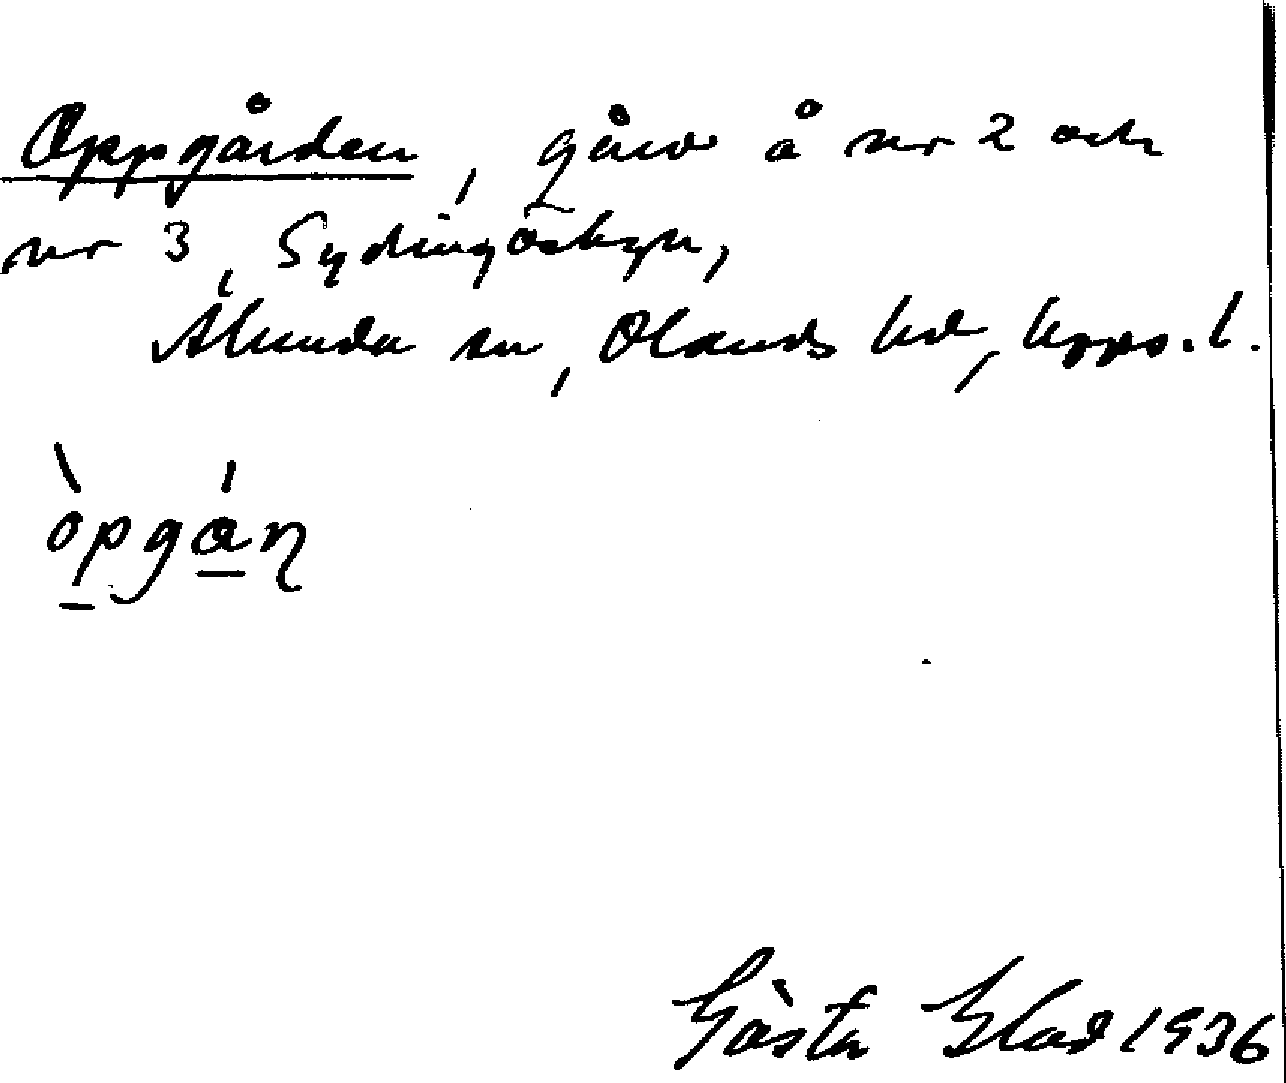 Oppgården, gård å nr 2 och
nr 3, Sydingöskyn,
Alunda sn, Olands hd, Upps. l.
òpgán
Gösta Elad 1936